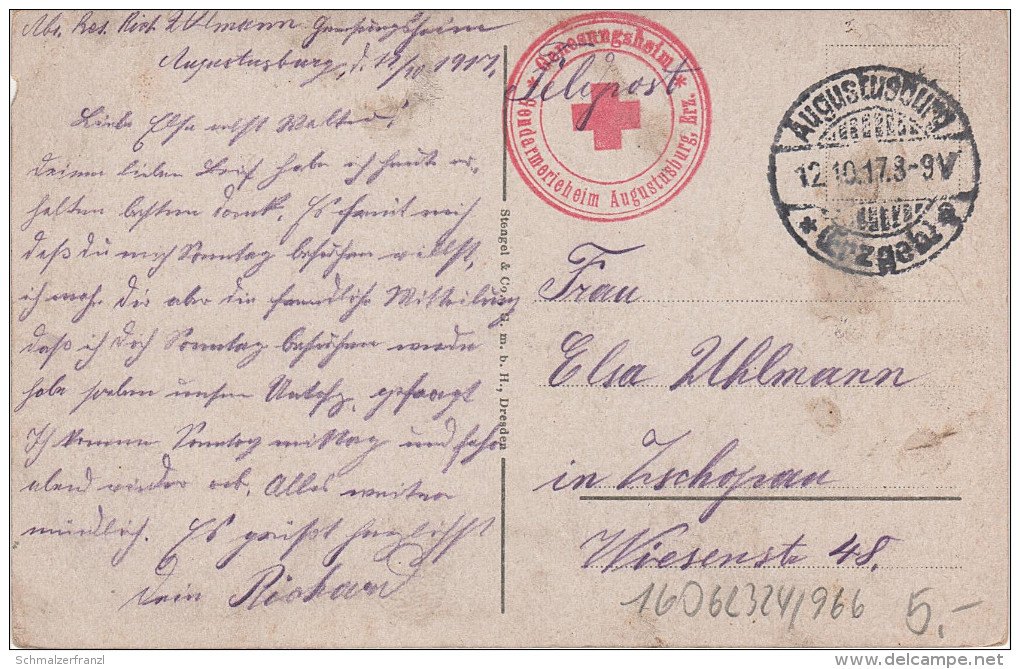 Abs. Res. Rich. Uhlmann Genesungsheim
Augustusburg, d. 12/10 1917.
Liebe Elsa nebst Walter!
Deinen lieben Brief habe ich heute er-
halten besten Dank. Es freut mich
daß du mich Sonntag besuchen willst,
ich mache Dir aber die freundliche Mitteilung
daß ich Dich Sonntag besuchen werde
habe soeben unsern gefragt
Ich komme Sonntag mittag und fahre
abend wieder ab. Alles weitere
mündlich. Es grüßt herzlichst
Dein Richard
Feldpost
* Genesungsheim *
Gendarmerieheim Augustusburg, Erz.
Augustusburg
12.10.17.8-9V
* (Erzgeb.) *
Stengel & Co., G. m. b. H., Dresden
Frau
Elsa Uhlmann
in Zschopau
Wiesenstr 48.
160623241966
5.-
Schmalzerfranzl
delcampe.net